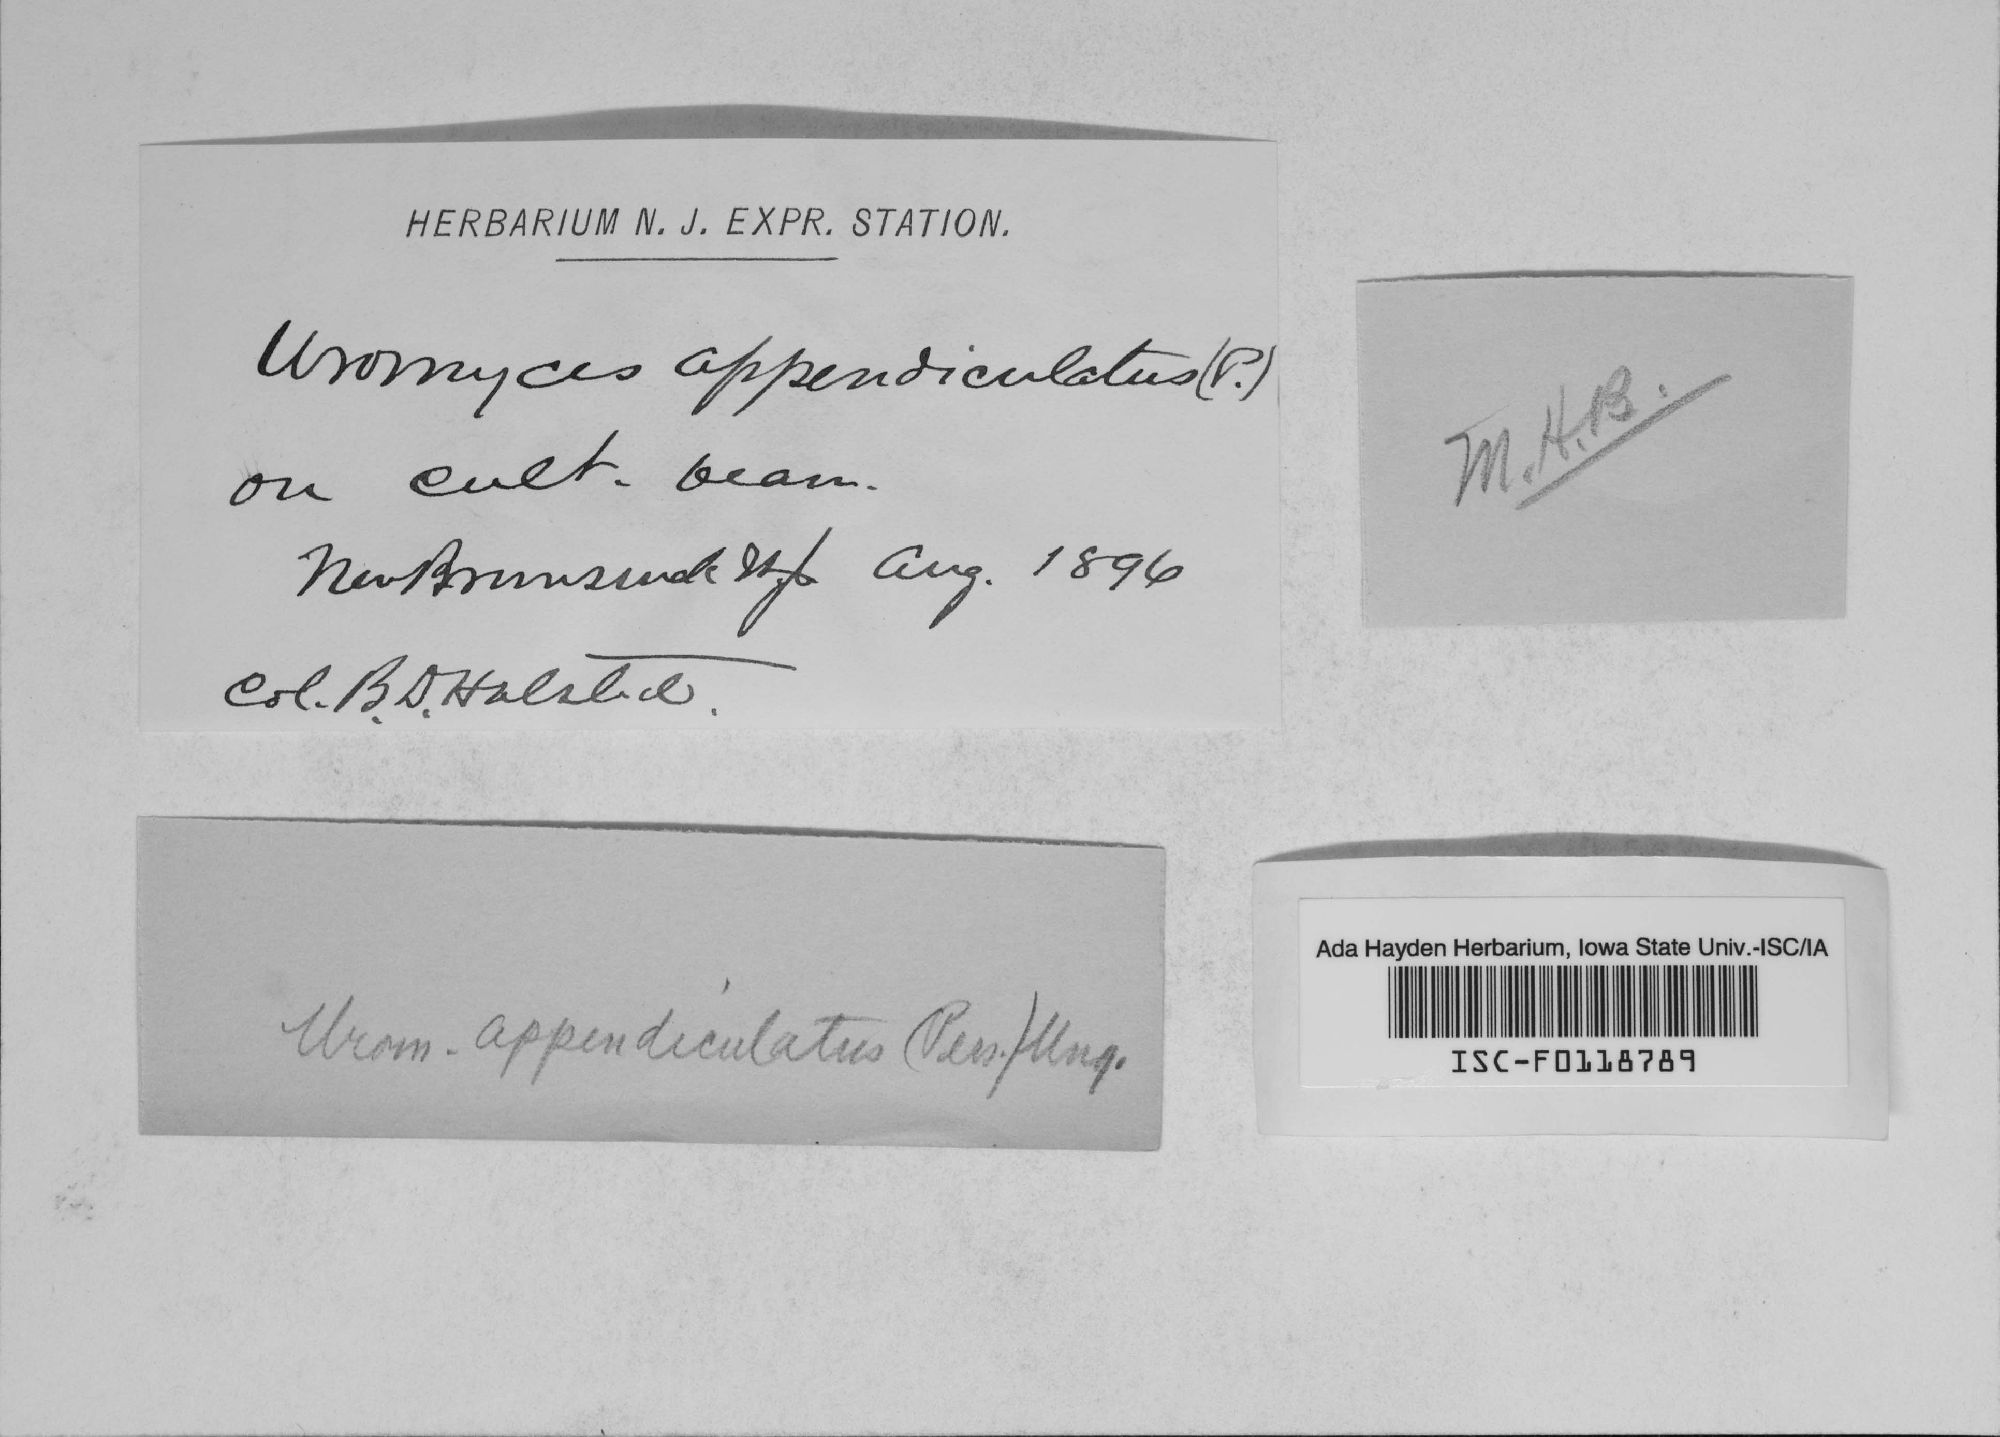 HERBARIUM N. J. EXPR. STATION.
Uromyces appendiculatus (P.)
on cult. bean.
New Brunswick N.J. Aug. 1896
Col. B. D. Halsted.
M.H.B.
Urom. appendiculatus (Pers.) Ung.
Ada Hayden Herbarium, Iowa State Univ.-ISC/IA
ISC-F0118789